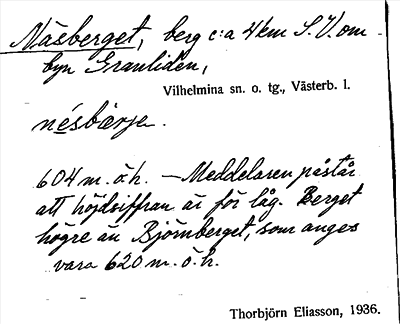 Näsberget, berg c:a 4 km S.V. om
byn Granliden,
Vilhelmina sn. o. tg., Västerb. l.
nésbærje.
604 m. ö. h. — Meddelaren påstår
att höjdsiffran är för låg. Berget
högre än Björnberget, som anges
vara 620 m. ö. h.
Thorbjörn Eliasson, 1936.